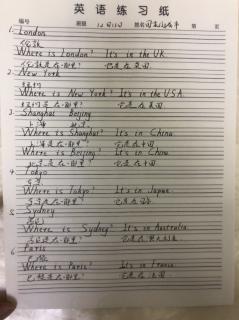 英语练习纸
编号 班级 12月15日 姓名 第 页
1. London
伦敦
Where is London? It's in the UK.
伦敦是在哪里? 它是在英国.
2. New York
纽约
Where is New York? It's in the USA.
纽约是在哪里? 它是在美国.
3. Shanghai Beijing
上海 北京
Where is Shanghai? It's in China.
上海是在哪里? 它是在中国.
Where is Beijing? It's in China.
北京是在哪里? 它是在中国
4. Tokyo
东京
Where is Tokyo? It's in Japan.
东京是在哪里? 它是在日本
5. Sydney
悉尼
Where is Sydney? It's in Australia.
悉尼是在哪里? 它是在澳大利亚.
6. Paris
巴黎
Where is Paris? It's in France.
巴黎是在哪里? 它是在法国.